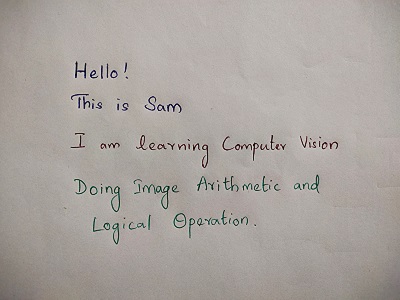 Hello!
This is Sam
I am learning Computer Vision
Doing Image Arithmetic and
Logical Operation.